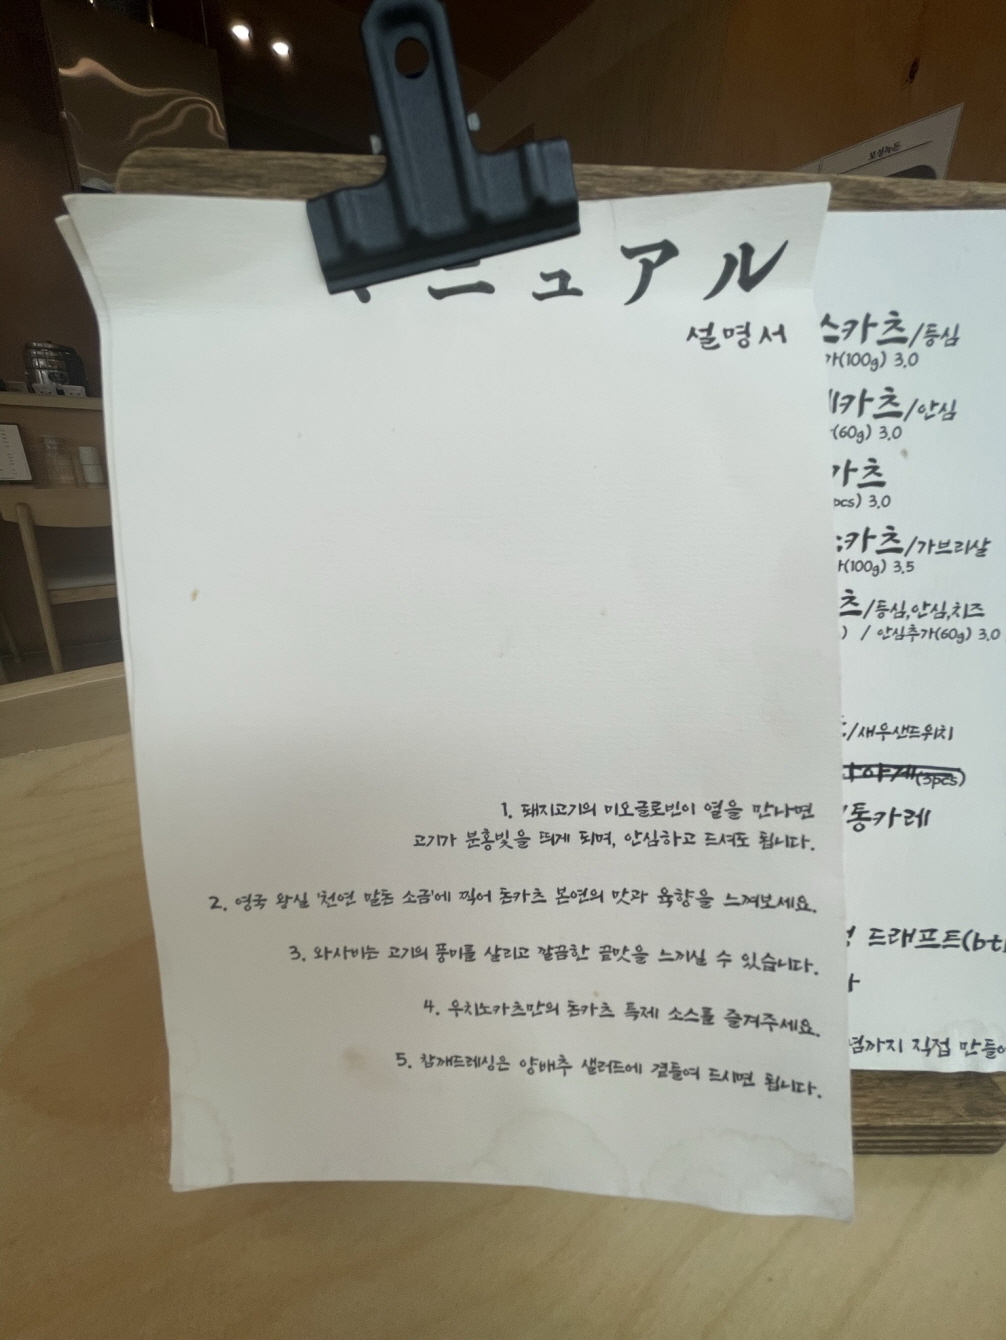 ニュアル
설명서
1. 돼지고기의 미오글로빈이 열을 만나면
고기가 분홍빛을 띄게 되며, 안심하고 드셔도 됩니다.
2. 영국 왕실 '천연 말돈 소금'에 찍어 돈카츠 본연의 맛과 육향을 느껴보세요.
3. 와사비는 고기의 풍미를 살리고 깔끔한 끝맛을 느끼실 수 있습니다.
4. 우치노카츠만의 돈카츠 특제 소스를 즐겨주세요.
5. 참깨드레싱은 양배추 샐러드에 곁들여 드시면 됩니다.
스카츠/등심
가(100g) 3.0
카츠/안심
(60g) 3.0
카츠
pcs) 3.0
카츠/가브리살
(100g) 3.5
츠/등심,안심,치즈
) / 안심추가(60g) 3.0
/새우샌드위치
(3pcs)
/통카레
드래프트(btl
까지 직접 만들어